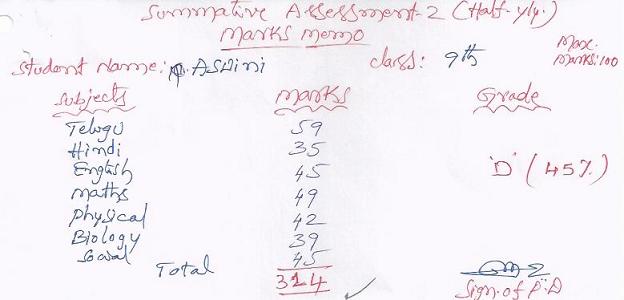 Summative Assessment-2 (Half-yly.)
Marks Memo
Student Name: P. ASWini Class: 9th Max. Marks:100
Subjects Marks Grade
Telugu 59
Hindi 35
English 45 'D' (45%)
Maths 49
Physical 42
Biology 39
Social 45
Total 314
Sign. of P.D